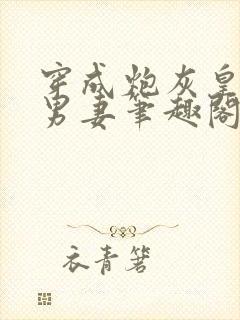 穿成炮灰皇
男妻笔趣阁
衣青箬